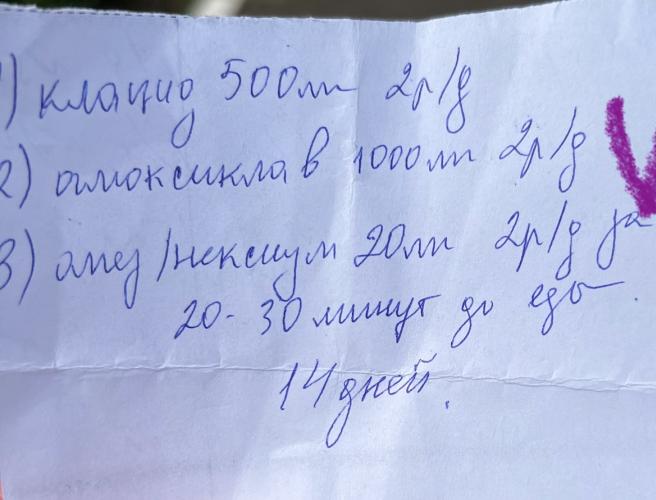 1) клацид 500мг 2р/д
2) амоксиклав 1000мг 2р/д
3) омез/нексиум 20мг 2р/д за
20-30 минут до еды
14 дней.